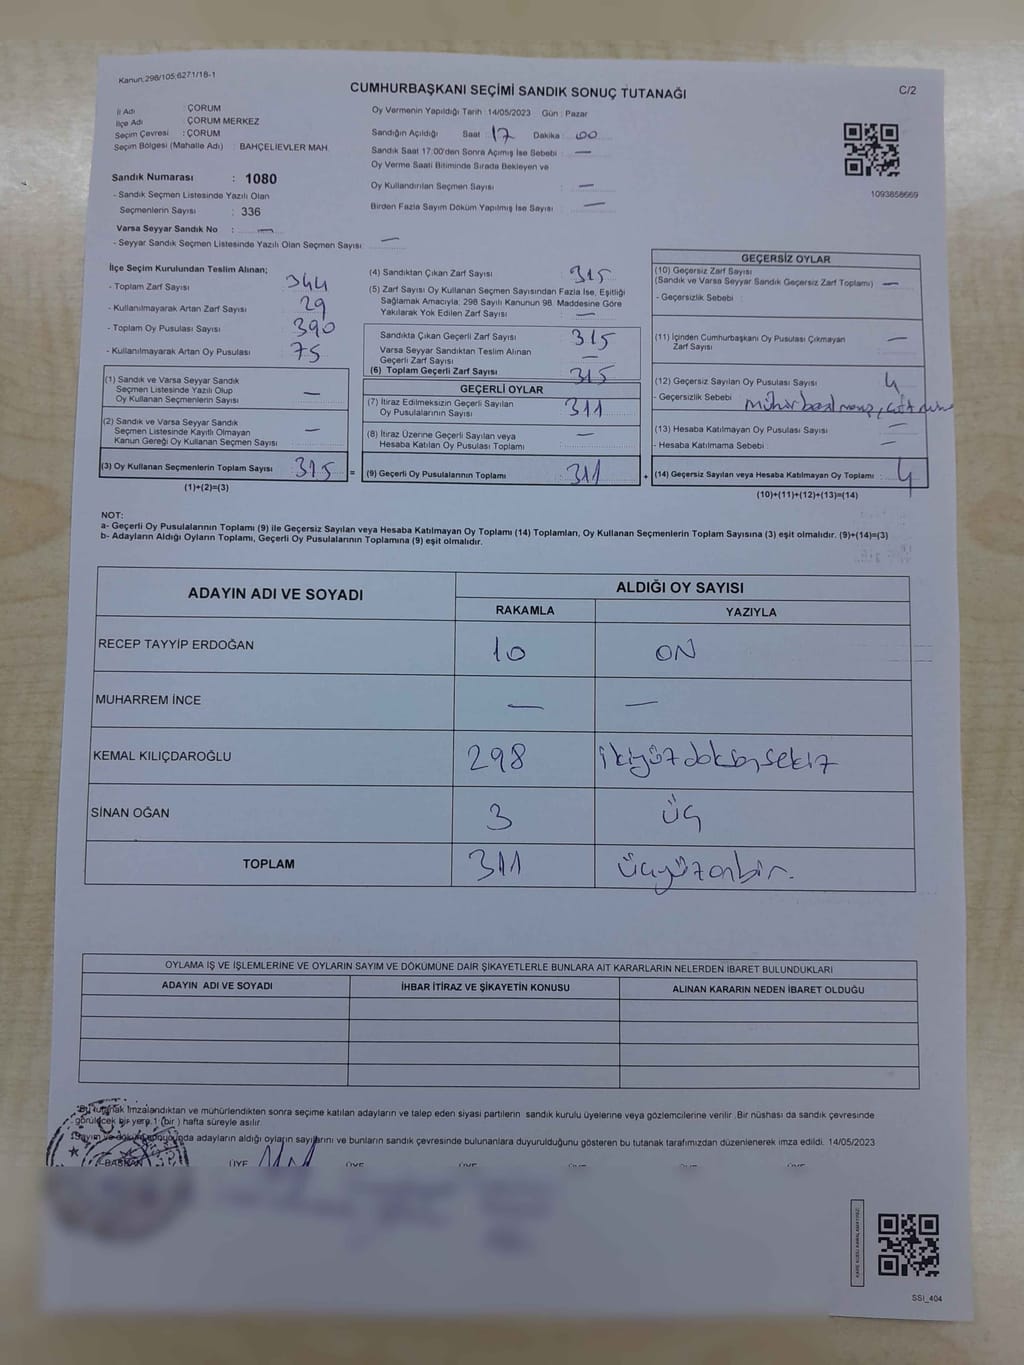 Kanun:298/105;6271/18-1
CUMHURBAŞKANI SEÇİMİ SANDIK SONUÇ TUTANAĞI
C/2
İl Adı : ÇORUM
İlçe Adı : ÇORUM MERKEZ
Seçim Çevresi : ÇORUM
Seçim Bölgesi (Mahalle Adı) : BAHÇELİEVLER MAH.
Sandık Numarası : 1080
- Sandık Seçmen Listesinde Yazılı Olan
Seçmenlerin Sayısı : 336
Varsa Seyyar Sandık No : —
- Seyyar Sandık Seçmen Listesinde Yazılı Olan Seçmen Sayısı: —
Oy Vermenin Yapıldığı Tarih : 14/05/2023 Gün : Pazar
Sandığın Açıldığı Saat : 17 Dakika : 00
Sandık Saat 17:00'den Sonra Açımış İse Sebebi : —
Oy Verme Saati Bitiminde Sırada Bekleyen ve
Oy Kullandırılan Seçmen Sayısı : —
Birden Fazla Sayım Döküm Yapılmış İse Sayısı : —
1093858669
İlçe Seçim Kurulundan Teslim Alınan;
- Toplam Zarf Sayısı : 344
- Kullanılmayarak Artan Zarf Sayısı : 29
- Toplam Oy Pusulası Sayısı : 390
- Kullanılmayarak Artan Oy Pusulası : 75
(1) Sandık ve Varsa Seyyar Sandık
Seçmen Listesinde Yazılı Olup
Oy Kullanan Seçmenlerin Sayısı : —
(2) Sandık ve Varsa Seyyar Sandık
Seçmen Listesinde Kayıtlı Olmayan
Kanun Gereği Oy Kullanan Seçmen Sayısı : —
(3) Oy Kullanan Seçmenlerin Toplam Sayısı : 315 =
(1)+(2)=(3)
(4) Sandıktan Çıkan Zarf Sayısı : 315
(5) Zarf Sayısı Oy Kullanan Seçmen Sayısından Fazla İse, Eşitliği
Sağlamak Amacıyla; 298 Sayılı Kanunun 98. Maddesine Göre
Yakılarak Yok Edilen Zarf Sayısı : —
Sandıkta Çıkan Geçerli Zarf Sayısı : 315
Varsa Seyyar Sandıktan Teslim Alınan
Geçerli Zarf Sayısı : —
(6) Toplam Geçerli Zarf Sayısı : 315
GEÇERLİ OYLAR
(7) İtiraz Edilmeksizin Geçerli Sayılan
Oy Pusulalarının Sayısı : 311
(8) İtiraz Üzerine Geçerli Sayılan veya
Hesaba Katılan Oy Pusulası Toplamı : —
(9) Geçerli Oy Pusulalarının Toplamı : 311 +
GEÇERSİZ OYLAR
(10) Geçersiz Zarf Sayısı
(Sandık ve Varsa Seyyar Sandık Geçersiz Zarf Toplamı) : —
- Geçersizlik Sebebi :
(11) İçinden Cumhurbaşkanı Oy Pusulası Çıkmayan
Zarf Sayısı : —
(12) Geçersiz Sayılan Oy Pusulası Sayısı : 4
- Geçersizlik Sebebi :
(13) Hesaba Katılmayan Oy Pusulası Sayısı : —
- Hesaba Katılmama Sebebi : —
(14) Geçersiz Sayılan veya Hesaba Katılmayan Oy Toplamı : 4
(10)+(11)+(12)+(13)=(14)
NOT:
a- Geçerli Oy Pusulalarının Toplamı (9) ile Geçersiz Sayılan veya Hesaba Katılmayan Oy Toplamı (14) Toplamları, Oy Kullanan Seçmenlerin Toplam Sayısına (3) eşit olmalıdır. (9)+(14)=(3)
b- Adayların Aldığı Oyların Toplamı, Geçerli Oy Pusulalarının Toplamına (9) eşit olmalıdır.
ADAYIN ADI VE SOYADI ALDIĞI OY SAYISI
RAKAMLA YAZIYLA
RECEP TAYYİP ERDOĞAN 10 ON
MUHARREM İNCE — —
KEMAL KILIÇDAROĞLU 298 ikiyüzdoksansekiz
SİNAN OĞAN 3 üç
TOPLAM 311 üçyüzonbir.
OYLAMA İŞ VE İŞLEMLERİNE VE OYLARIN SAYIM VE DÖKÜMÜNE DAİR ŞİKAYETLERLE BUNLARA AİT KARARLARIN NELERDEN İBARET BULUNDUKLARI
ADAYIN ADI VE SOYADI İHBAR İTİRAZ VE ŞİKAYETİN KONUSU ALINAN KARARIN NEDEN İBARET OLDUĞU
Bu tutanak imzalandıktan ve mühürlendikten sonra seçime katılan adayların ve talep eden siyasi partilerin sandık kurulu üyelerine veya gözlemcilerine verilir .Bir nüshası da sandık çevresinde
görülecek bir yere 1 (bir ) hafta süreyle asılır.
Sayım ve döküm sonucunda adayların aldığı oyların sayılarını ve bunların sandık çevresinde bulunanlara duyurulduğunu gösteren bu tutanak tarafımızdan düzenlenerek imza edildi. 14/05/2023
BAŞKAN ÜYE ÜYE ÜYE ÜYE ÜYE ÜYE
SSI_404